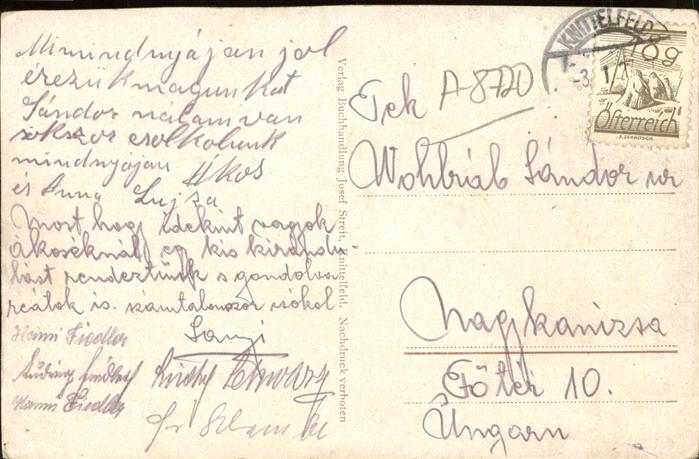 Mimindnyájan jol
érezük magunkat
Sándor nálam van
sokszor csolkolunk
mindnyájan Ákos
és Anna Lujza
Most hogy idekint vagyok
Ákoséknál eg kis kirándu-
lást rendeztünk s gondolva
reátok is. számtalanszor csókol
Sanyi
Hanni Fiedler
Ludwig
Hanni Fiedler
Rudolf Schwarz
Verlag Buchhandlung Josef Streit, Knittelfeld. Nachdruck verboten
A-8720
KNITTELFELD
10g
Österreich
Tek
Wohlráb Sándor ur
Nagykanizsa
Főtér 10.
Ungarn